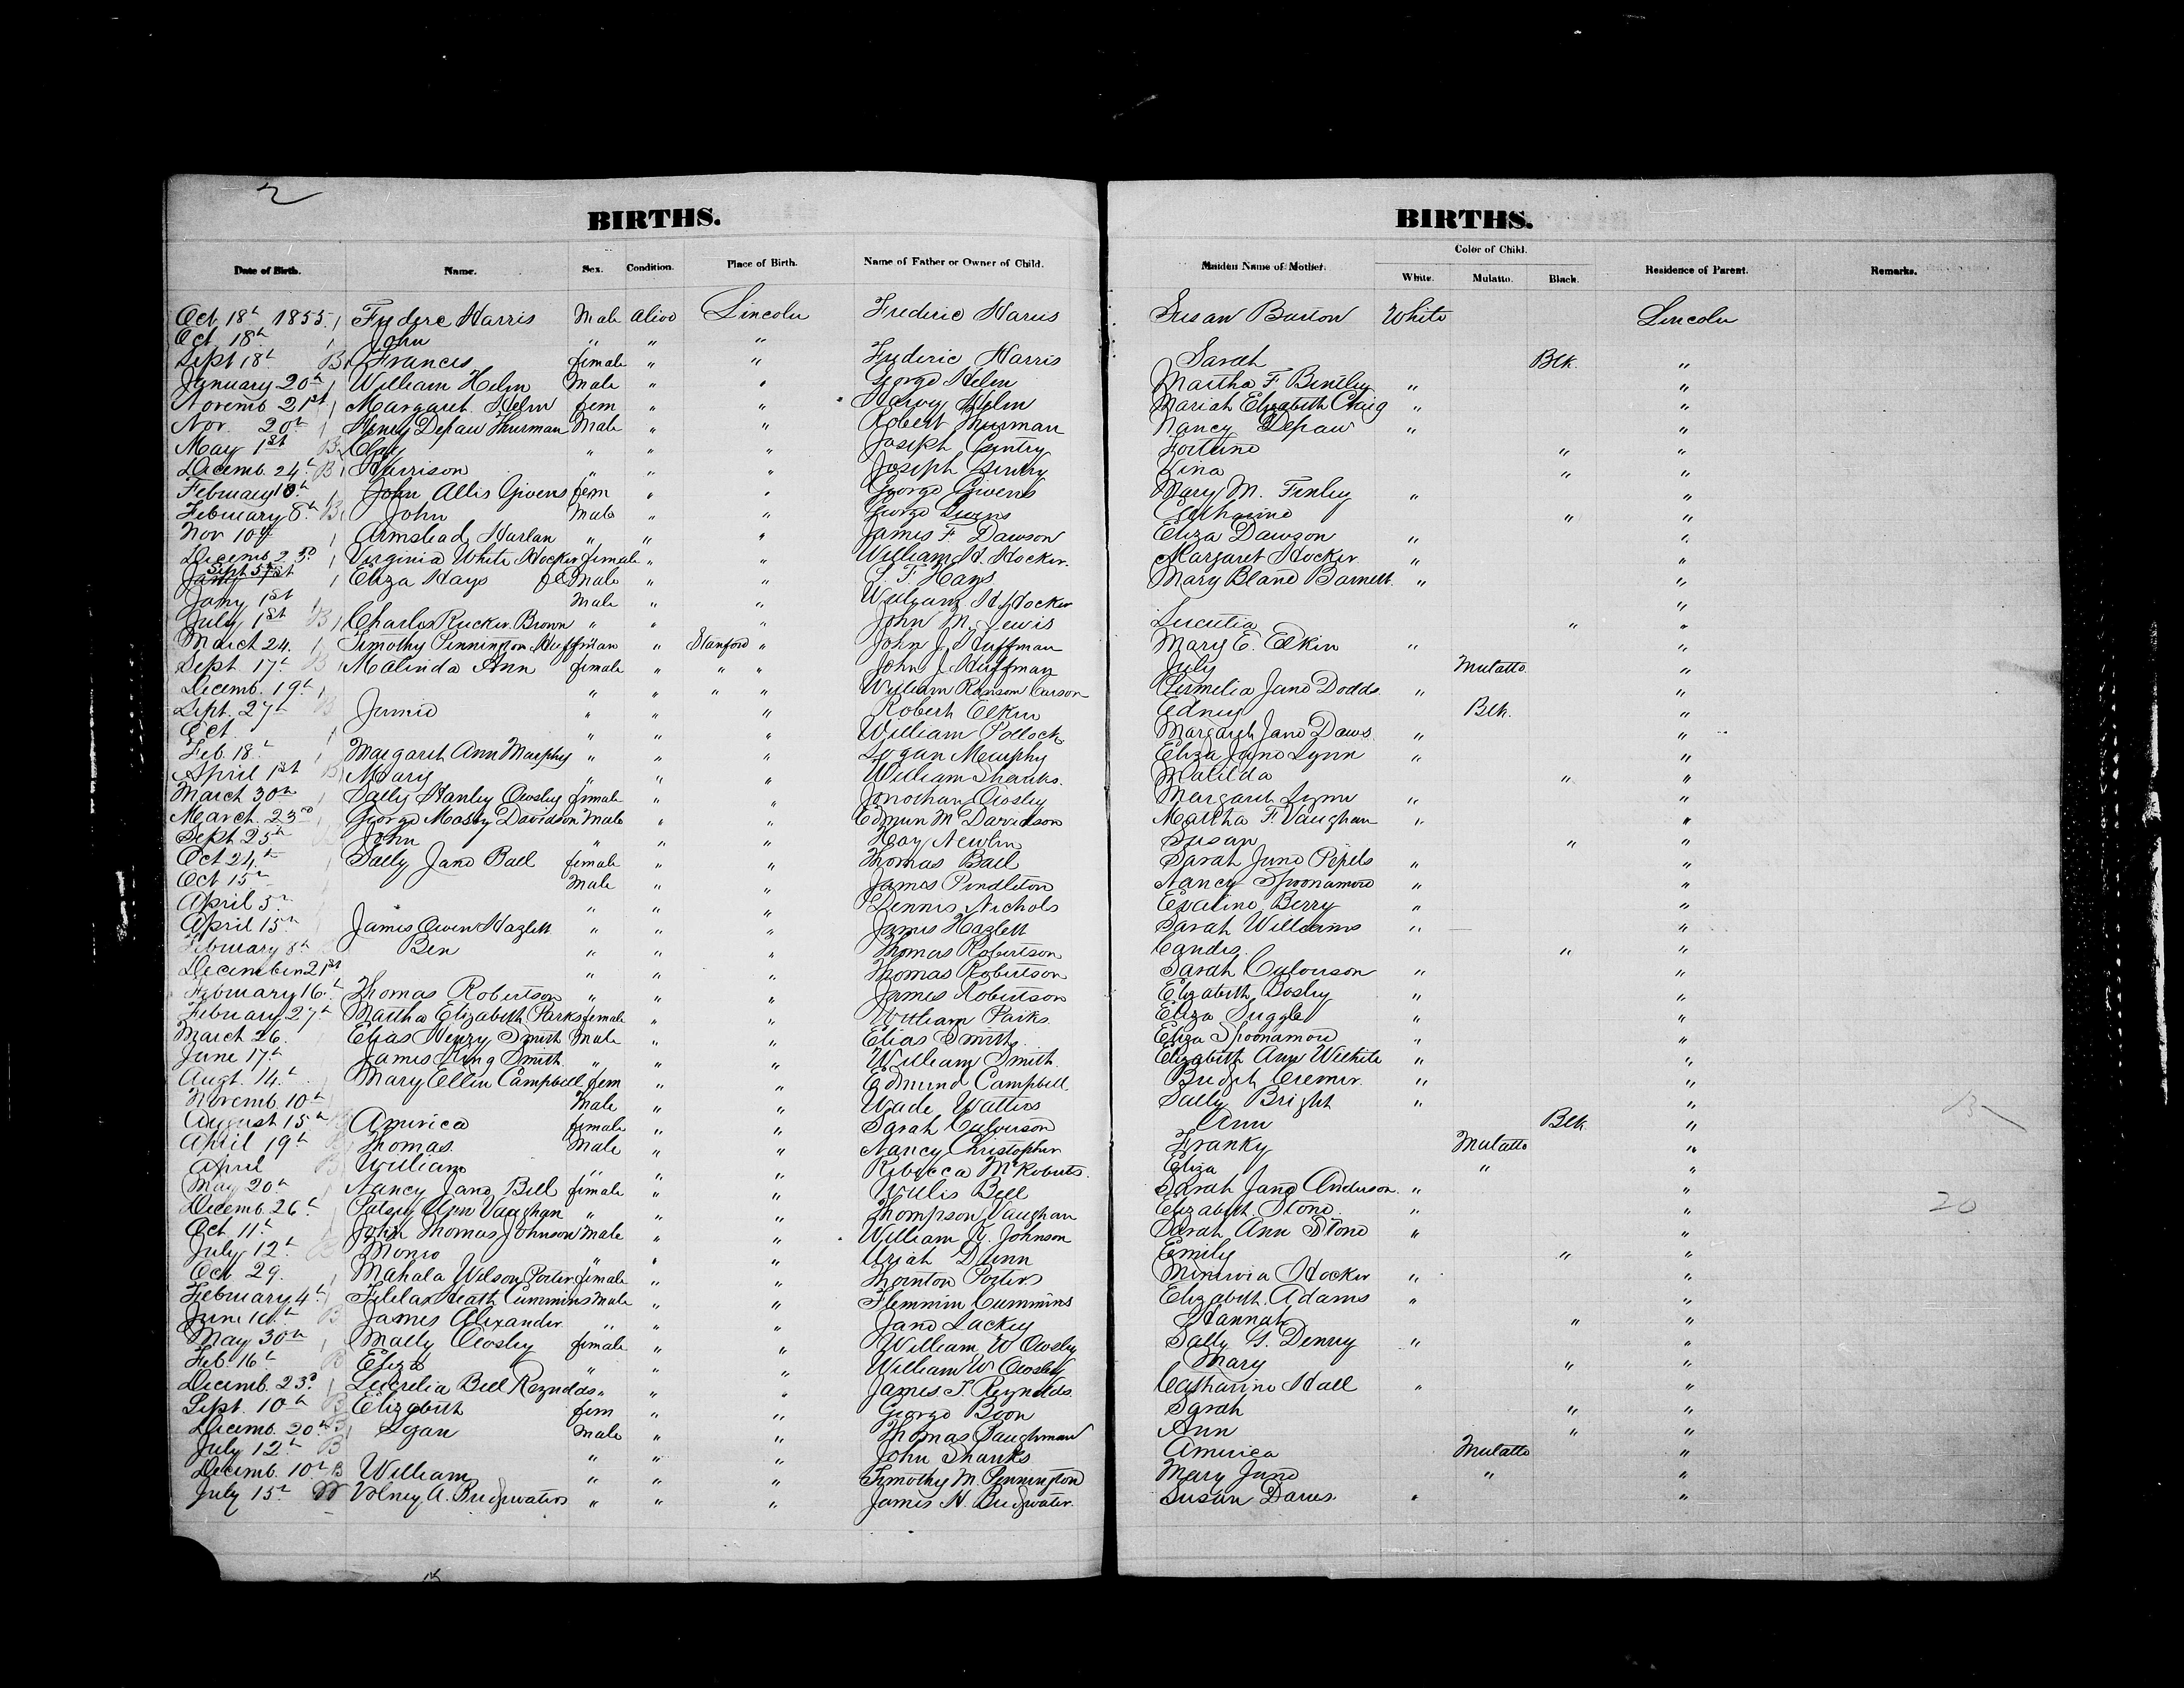 2
BIRTHS. BIRTHS.
Date of Birth. Name. Sex. Condition. Place of Birth. Name of Father or Owner of Child. Maiden Name of Mother. Color of Child. White. Mulatto. Black. Residence of Parent. Remarks.
Oct 18th 1855. Frederic Harris Male alive Lincoln Frederic Harris Susan Burton White Lincoln
Oct 18th John " " "
Sept 18th B Frances female " " Frederic Harris Sarah Blk. "
January 20th William Helm Male " " George Helm Martha F Bentley " "
Novemb. 21st Margaret Helm fem " " Harvy Helm Mariah Elizabeth Craig " "
Nov. 20th Henry Depauw Thurman Male " " Robert Thurman Nancy Depauw " "
May 1st B Clay " " " Joseph Gentry Fortune " "
Decemb. 24th B Harrison " " " Joseph Gentry Lina " "
February 10th John Allis Givens fem " " George Givens Mary M. Finley " "
February 8th B John Male " " George Givens Catharine " "
Nov 10th Armstead Harlan " " " James F. Dawson Eliza Dawson " "
Decemb 23d Virginia White Hocker female " " William H. Hocker. Margaret Hocker " "
Sept 5th Eliza Hays feMale " " Hays Mary Bland Barnett " "
Jany 1st Male " " William H Hocker "
July 1st B Charles Rucker Brown " " " John M. Lewis Lucretia " "
March 24. Timothy Pennington Huffman " " Stanford " John J. Huffman Mary E. Elkin " "
Sept. 17th B Malinda Ann female " " " John J. Huffman July Mulatto "
Decemb. 19th " " " " William Ransom Carson Permelia Jane Dodds " "
Sept. 27th B Jennie " " " Robert Elkin Edney Blk. "
Oct. " " " William Pollock Margaret Jane Daws " "
Feb. 18th Margaret Ann Murphy " " " Logan Murphy Eliza Jane Lynn " "
April 1st B Mary " " " William Shanks. Matilda " "
March 30th Sally Hanley Owsley female " " Jonothan Owsley Margaret Lynn " "
March. 23d George Massy Davidson Male " " Edmun M Davidson Martha F. Vaughan " "
Sept 25th John " " " Hay Newlin Susan " "
Oct 24th Sally Jane Ball female " " Thomas Ball Sarah Jane Pepels " "
Oct 15th Male " " James Pendleton Nancy Spoonamore " "
April 5th " " " Dennis Nichols Evaline Berry " "
April 15th James Owen Hazlett " " " James Hazlett Sarah Williams " "
February 8th Ben " " " Thomas Robertson Candis " "
December 21st " " " Thomas Robertson Sarah Culverson " "
February 16th Thomas Robertson " " " James Robertson Elizabeth Bosley " "
February 27th Martha Elizabeth Parks female " " William Parks. Eliza Suggle " "
March 26. Elias Henry Smith Male " " Elias Smith Eliza Spoonamore " "
June 17th James King Smith " " " William Smith Elizabeth Ann Wilhite " "
Augt. 14th Mary Ellen Campbell fem " " Edmund Campbell. Bridget Cremer. " "
Novemb. 10th Male " " Wade Watters Sally Bright " "
August 15th America female " " Sarah Culverson Ann Blk. "
April 19th Thomas. Male " " Nancy Christopher Franky Mulatto "
April B William " " " Rebecca McRoberts. Eliza " "
May 20th Nancy Jane Bell female " " Willis Bell Sarah Jane Anderson. " "
Decemb. 26th Patsy Ann Vaughan " " " Thompson Vaughan Elizabeth Stone. " " 20
Oct 11th John Thomas Johnson Male " " William Johnson Sarah Ann Stone " "
July 12th Monro " " " Uriah Dunn Emily " "
Oct 29. Mahala Wilson Porter female " " Thornton Porter Minerva Hocker " "
February 4th Heath Cummins Male " " Flemmin Cummins Elizabeth Adams " "
June 10th B James Alexander " " " Jane Lackey Hannah " "
May 30th Mally Owsley female " " William W Owsley Sally G. Denny " "
Feb. 16th B Eliza " " " William W Owsley Mary " "
Decemb. 23d Lucrelia Bell Reynolds " " " James T. Reynolds. Catharine Hall " "
Sept. 10th B Elizabeth fem " " George Boon Sarah " "
Decemb. 20th B Logan Male " " Thomas Baughman Ann " "
July 12th B " " " John Shanks America Mulatto "
Decemb. 10th B William " " " Timothy M. Pennington Mary Jane " "
July 15th W Volney A. Bridgwaters " " " James H. Bridgwater. Susan Daws. " "